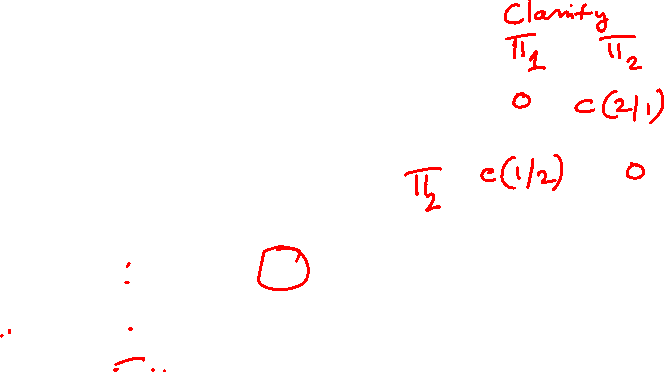 Classify
π₁ π₂
0 c(2/1)
π₂ c(1/2) 0